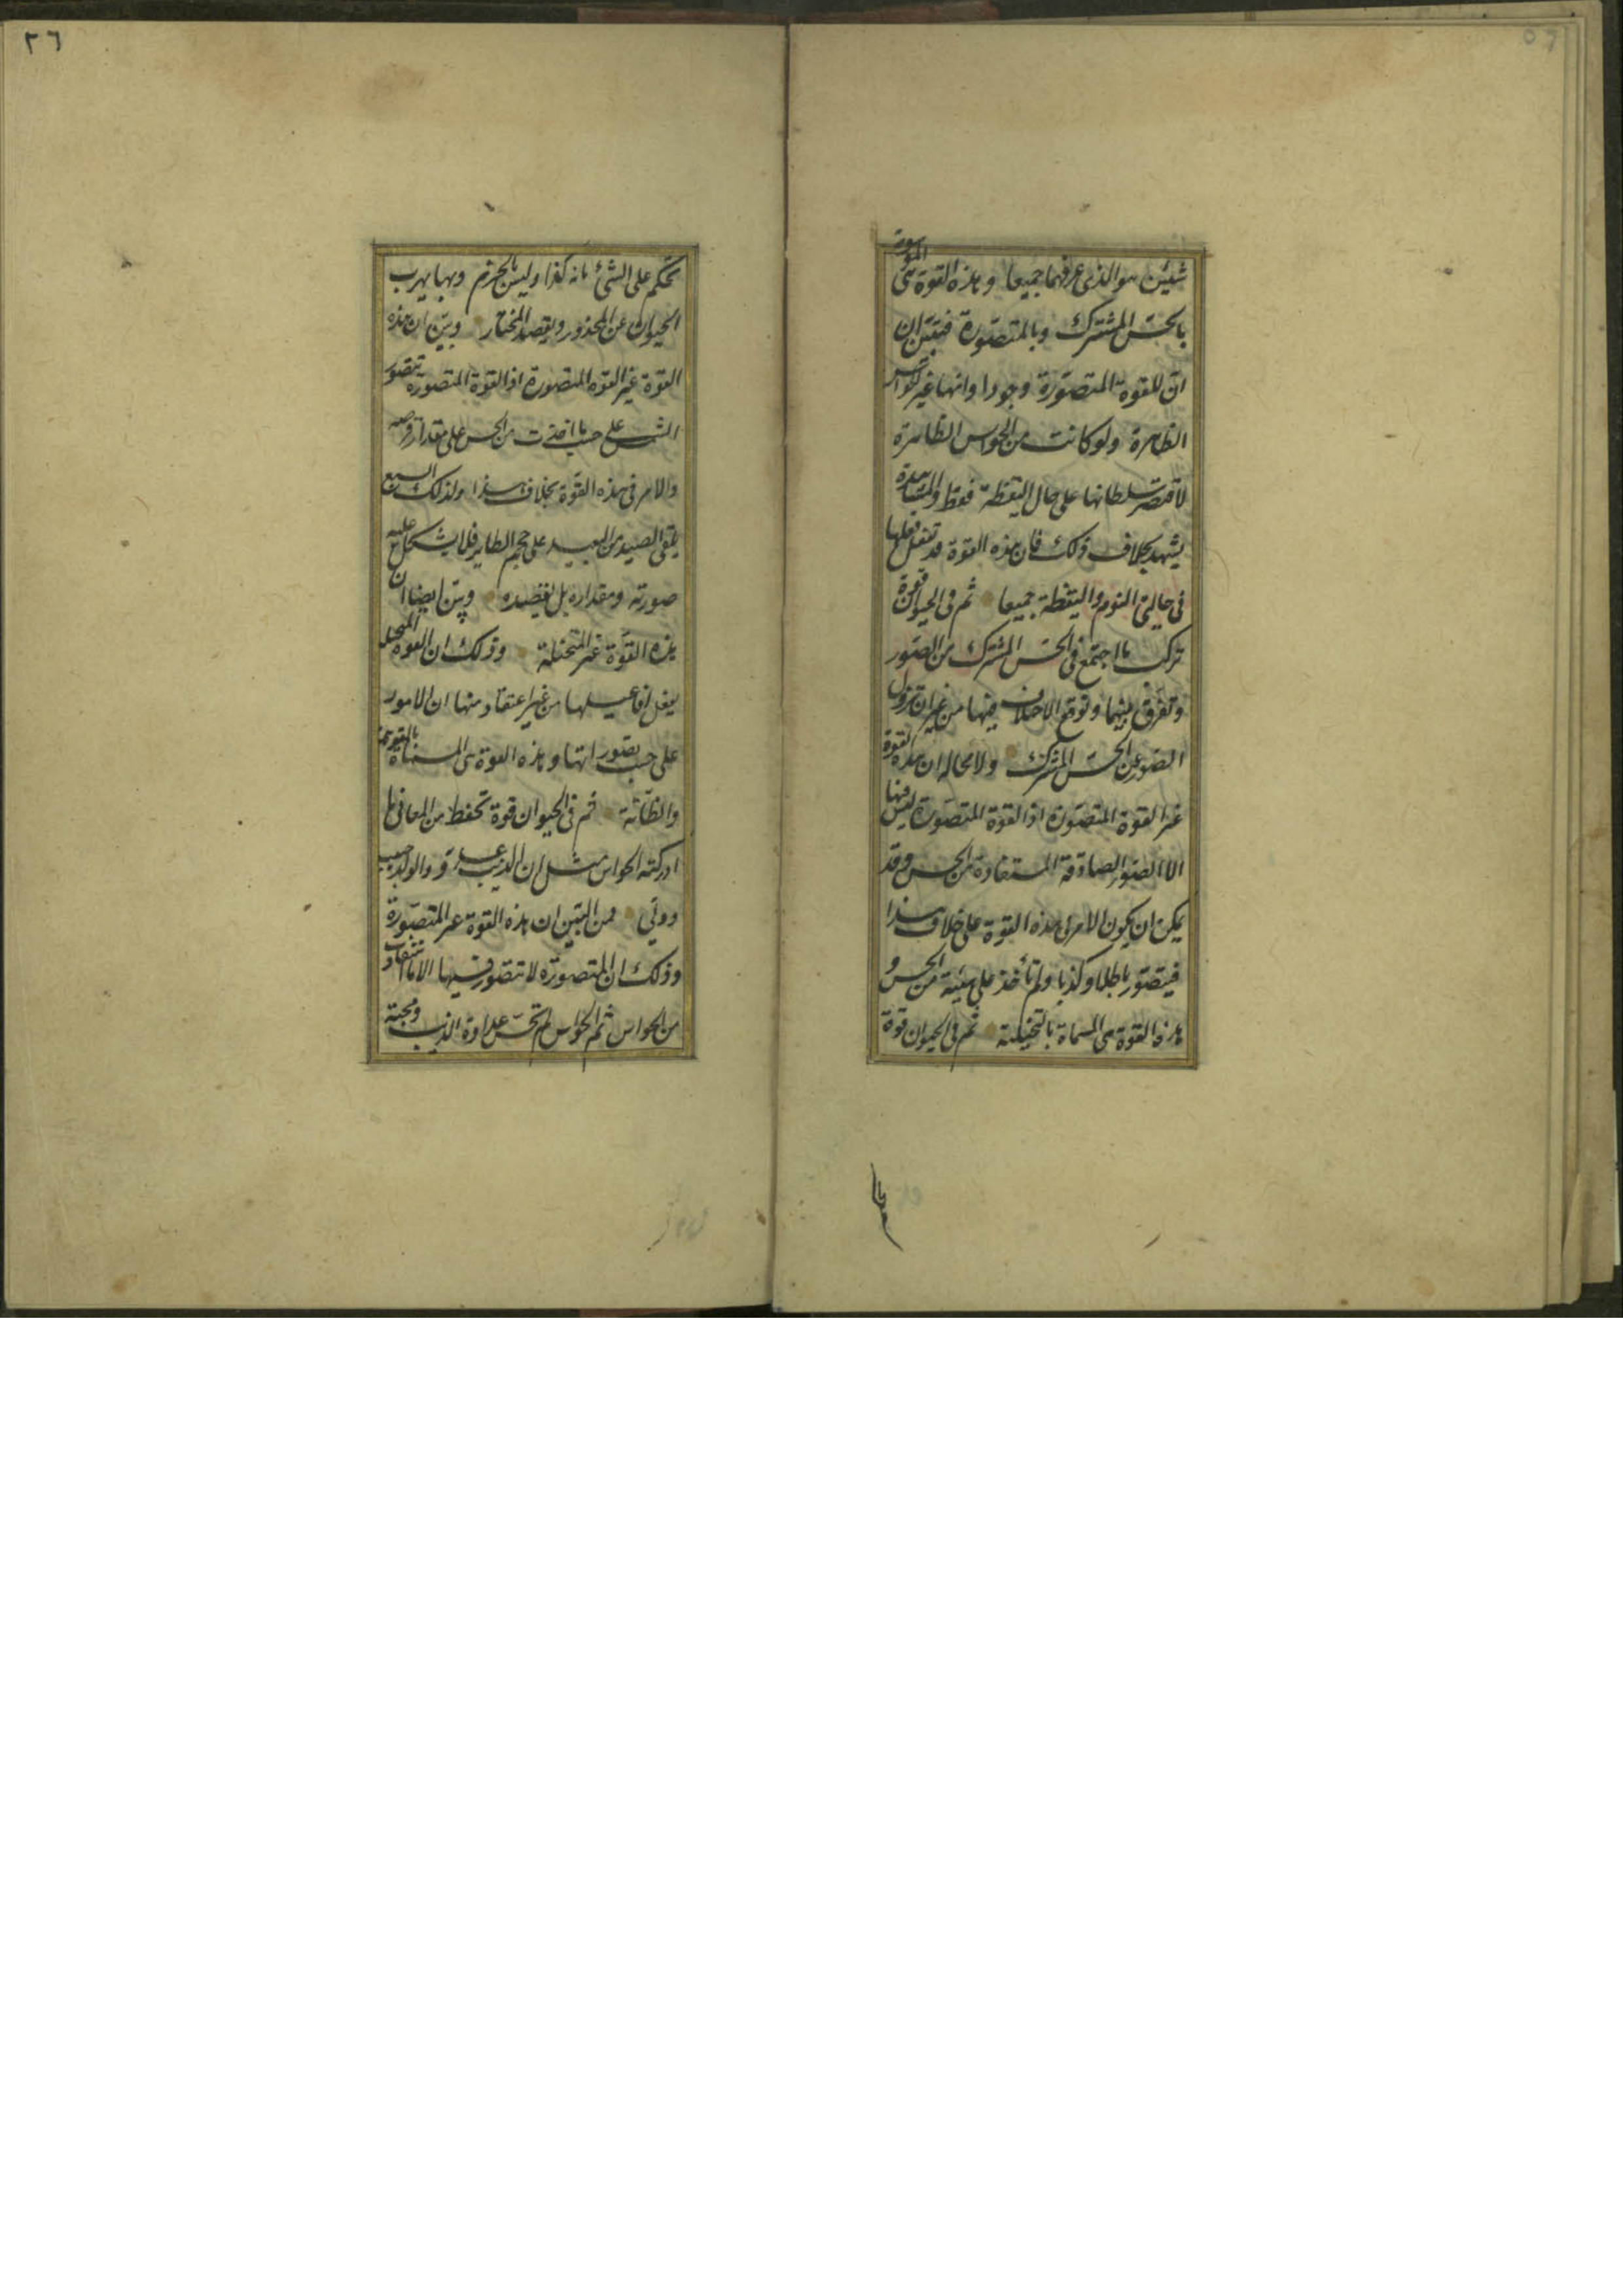 شيئين هو الذى عرفهما جميعا وهذه القوة هى الموسومة
بالحسّ المشترك وبالمتصوّرة فبيّن ان
انّ للقوة المتصوّرة وجودا وانها غير الحواس
الظاهرة ولو كانت من الحواس الظاهرة
لاقتصر سلطانها على حال اليقظة فقط والمشاهدة
يشهد بخلاف ذلك فان هذه القوة قد تفعل فعلها
فى حالتى النوم واليقظة جميعا ثم فى الحيوان قوة
تركب ما اجتمع فى الحسّ المشترك من الصّور
وتفرق بينها وتوقع الاختلاف فيها من غير ان تزول
الصّور عن الحسّ المشترك ولا محالة ان هذه القوة
غير القوة المتصوّرة اذ القوة المتصوّرة ليس فيها
الا الصّور الصادقة المستفادة من الحس وقد
يمكن ان يكون الامر فى هذه القوة على خلاف هذا
فيتصوّر باطلا وكذبا ولم تأخذ على هيئة من الحس و
هذه القوة هى المسماة بالمتخيلة ثم فى الحيوان قوة
٢٦
تحكم على الشئ بانه كذا وليس بالجزم وبها يهرب
الحيوان عن المحذور ويقصد المختار وبيّن ان هذه
القوة غير القوة المتصورة اذ القوة المتصورة يتصور
الشمس على حسب ما اخذت من الحس على مقدار قرصه
والامر فى هذه القوّة بخلاف هذا وكذلك السبع
يلقى الصيد من البعيد على حجم الطاير فلا يشكل عليه
صورته ومقداره بل يقصده وبيّن ايضا ان
هذه القوّة غير المتخيلة وذلك ان القوة المتخيلة
يفعل افاعيلها من غير اعتقاد منها ان الامور
على حسب تصوراتها وهذه القوة هى المسماة بالمتوهمة
والظانّة ثم فى الحيوان قوة تحفظ من المعانى ما
ادركته الحواس مثل ان الذيب عدوّ والولد حبيب
وولىّ فمن البيّن ان هذه القوة غير المتصوّرة
وذلك ان المتصورة لا تتصوّر فيها الا ما استفادت
من الحواس ثم الحواس لم تحسّ عداوة الذيب ومحبة